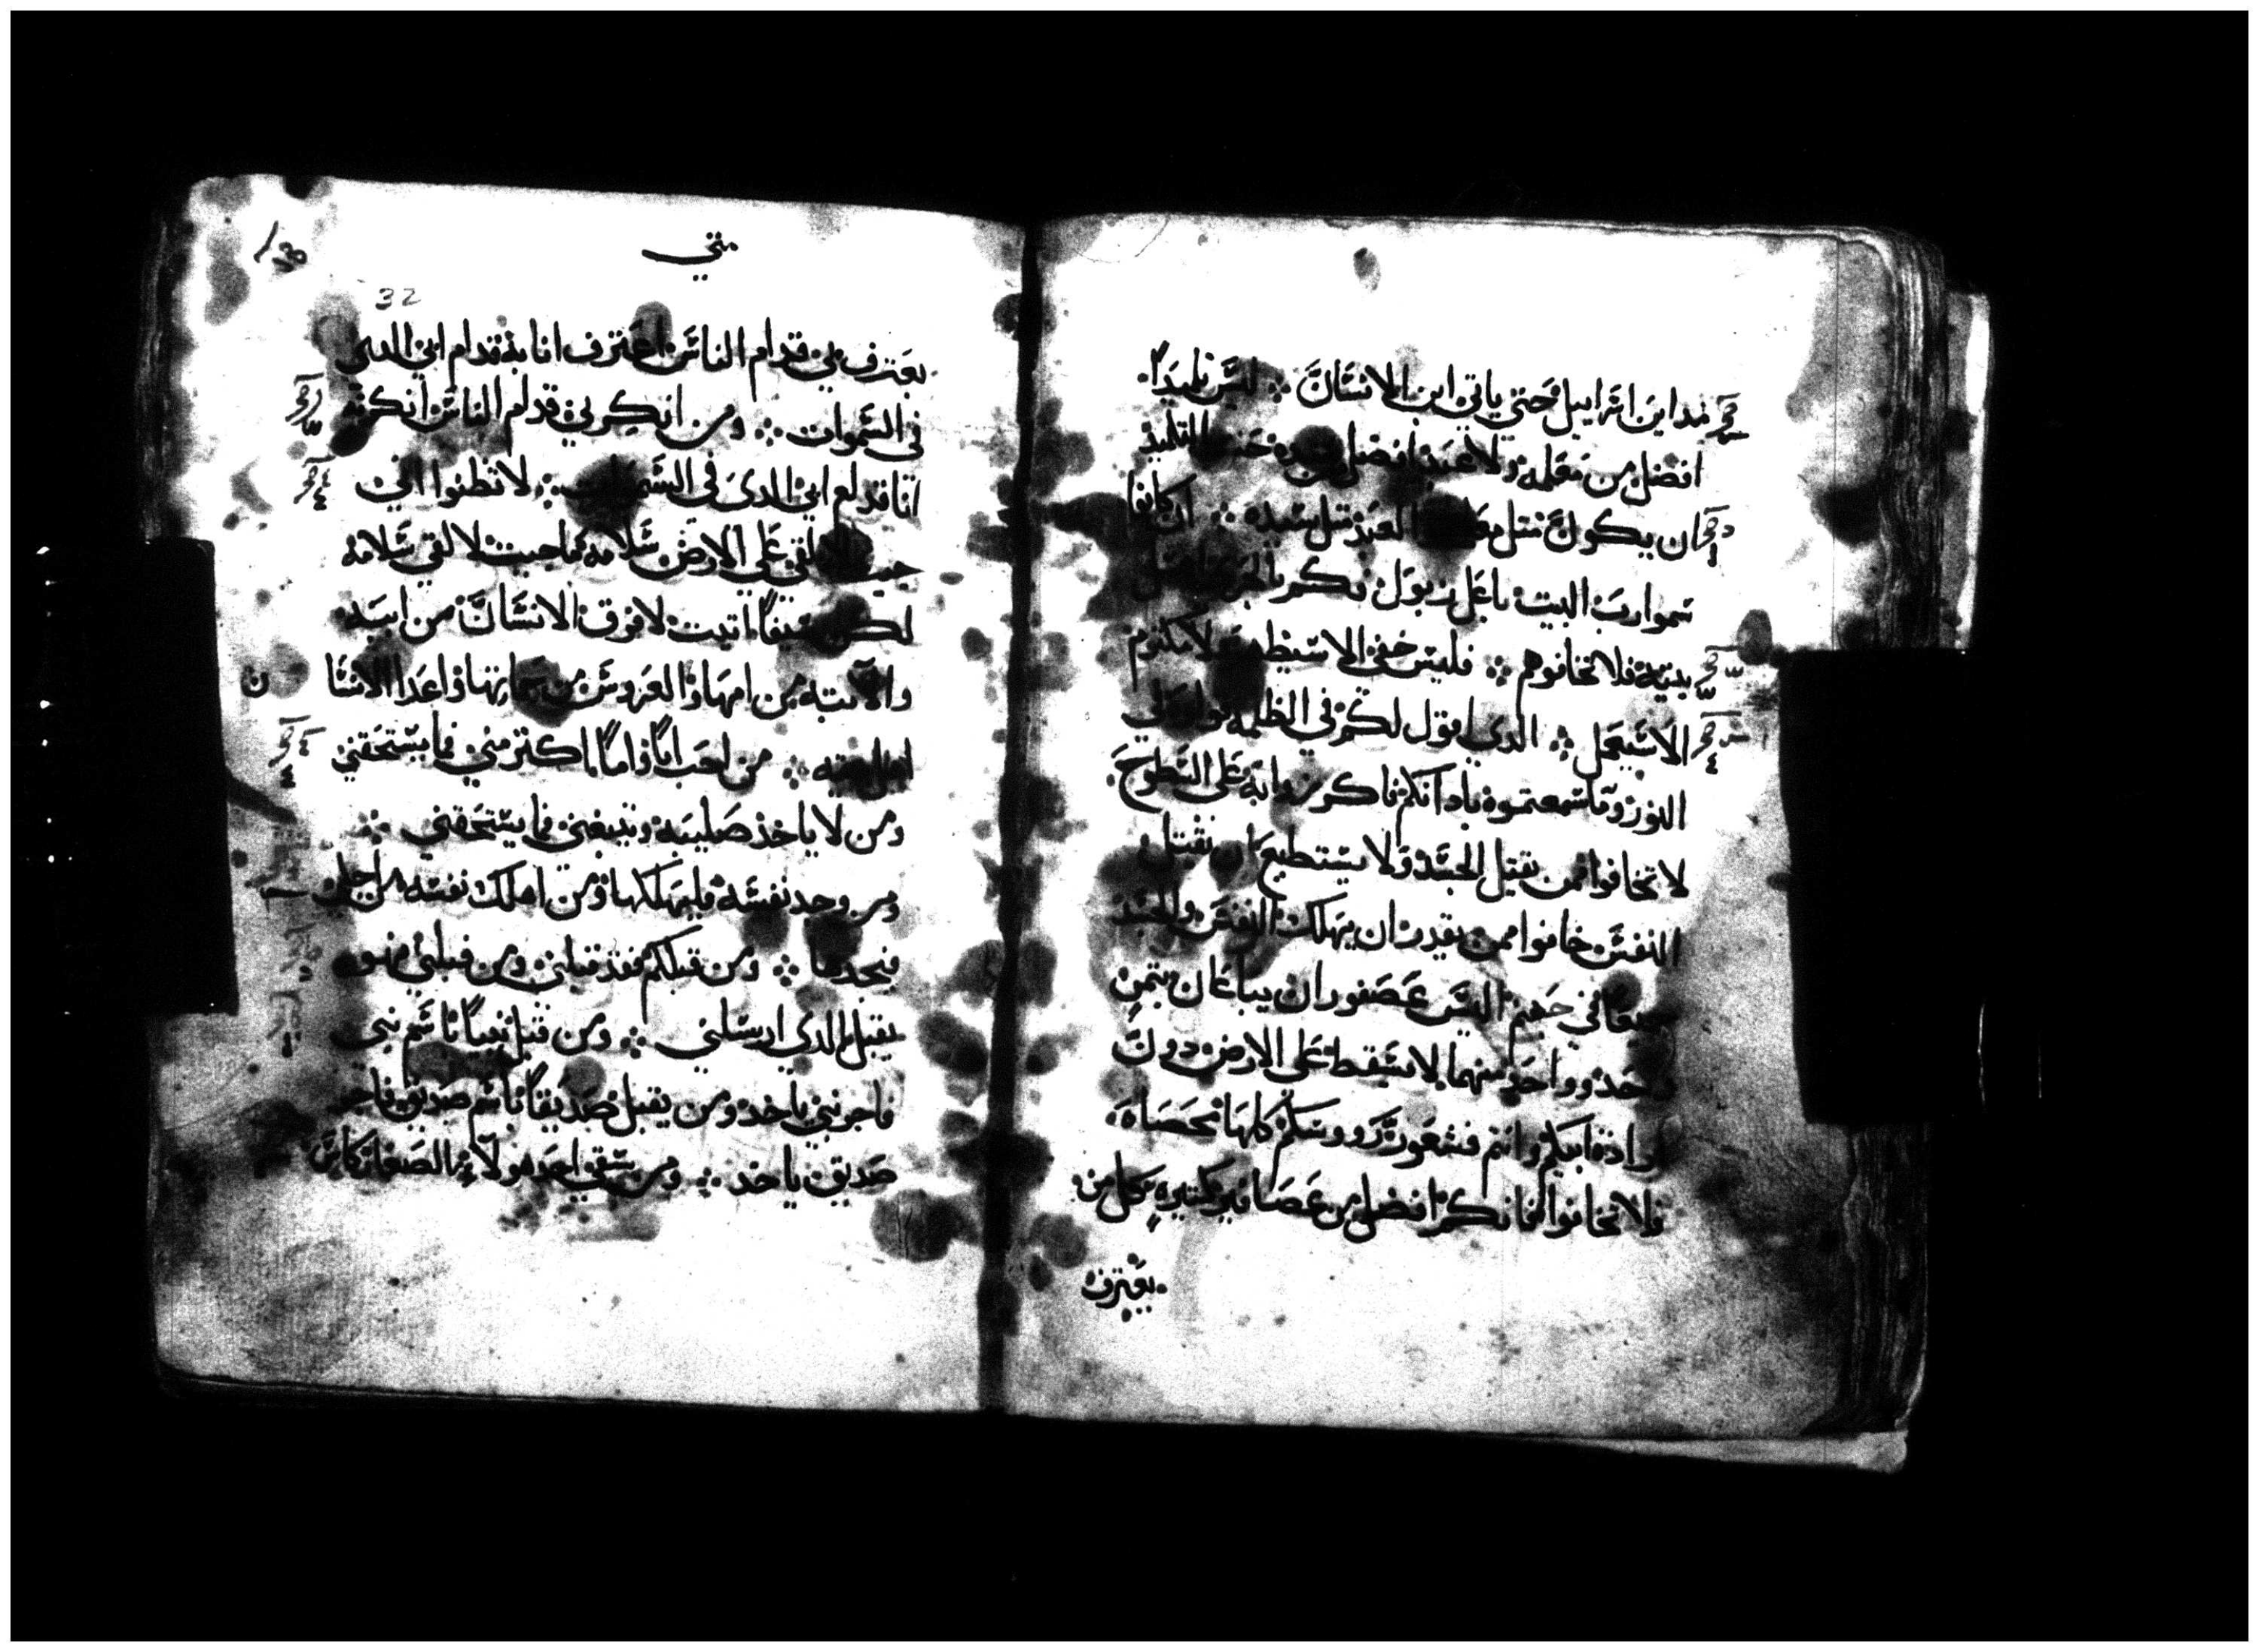 مداين اسراييل حتي ياتي ابن الانسان ۞ ليس تليدا
افضل من معلمه ولا عبد افضل من سيده حسب التلميد
ان يكون متل معلمه العبد متل سيده ۞ ان كانوا
سموا رب البيت باعل زبول فكم بالحري اهل
بيته فلا تخافوهم ۞ فليس خفي الا سيظهر ولا مكتوم
الا سيعلن ۞ الدي اقول لكم في الظلمه قولوه في
النور وما سمعتموه بادانكم فاكرزوا به علي السطوح
لا تخافوا ممن يقتل الجسد ولا يستطيع ان يقتل
النفس خافوا ممن يقدر ان يهلك النفس والجسد
جميعا في جهنم اليس عصفوران يباعان بتمن
واحد وواحد منهما لا يسقط علي الارض دون
ارادة ابيكم وانتم فشعور رووسكم كلها محصاه
فلا تخافوا فانكم افضل من عصافير كتيره فكل من
يعترف
متي
32
يعترف بي قدام الناس اعترف انا به قدام ابي الدي
في السموات ۞ ومن انكرني قدام الناس انكرته
انا قدام ابي الدي في السموات ۞ لا تظنوا اني
جيت لالقي علي الارض سلامه ما جيت لالقي سلامه
لكن سيفا اتيت لافرق الانسان من ابيه
والابنه من امها والعروس من حماتها واعدا الانسا ن
اهل بيته ۞ من احب ابا او اما اكتر مني فما يستحقني
ومن لا ياخذ صليبه ويتبعني فما يستحقني ۞
ومن وجد نفسه فليهلكها ومن اهلك نفسه من اجلي
فيجدها ۞ ومن قبلكم فقد قبلني ومن قبلني فهو
يقبل الدي ارسلني ۞ ومن قبل نبيا باسم نبي
فاجر نبي ياخذ ومن يقبل صديقا باسم صديق فاجر
صديق ياخذ ۞ ومن سقي احد هولاء الصغار كاس